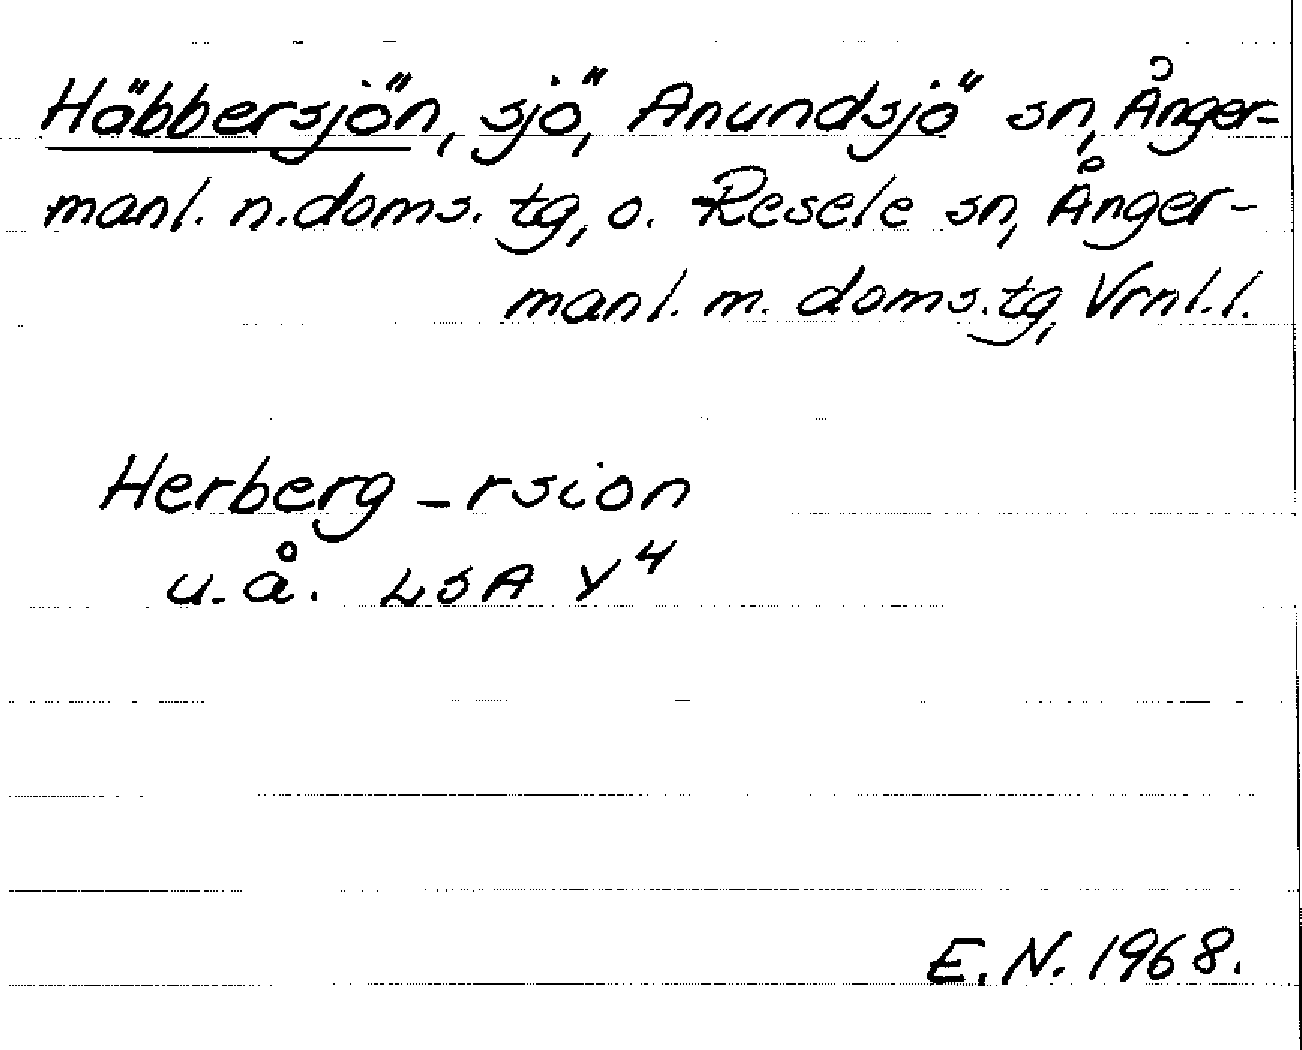 Häbbersjön, sjö, Anundsjö sn, Ånger-
manl. n. doms. tg, o. Resele sn, Ånger-
manl. m. doms. tg, Vrnl. l.
Herberg – rsion
u. å. LSA Y4
E. N. 1968.